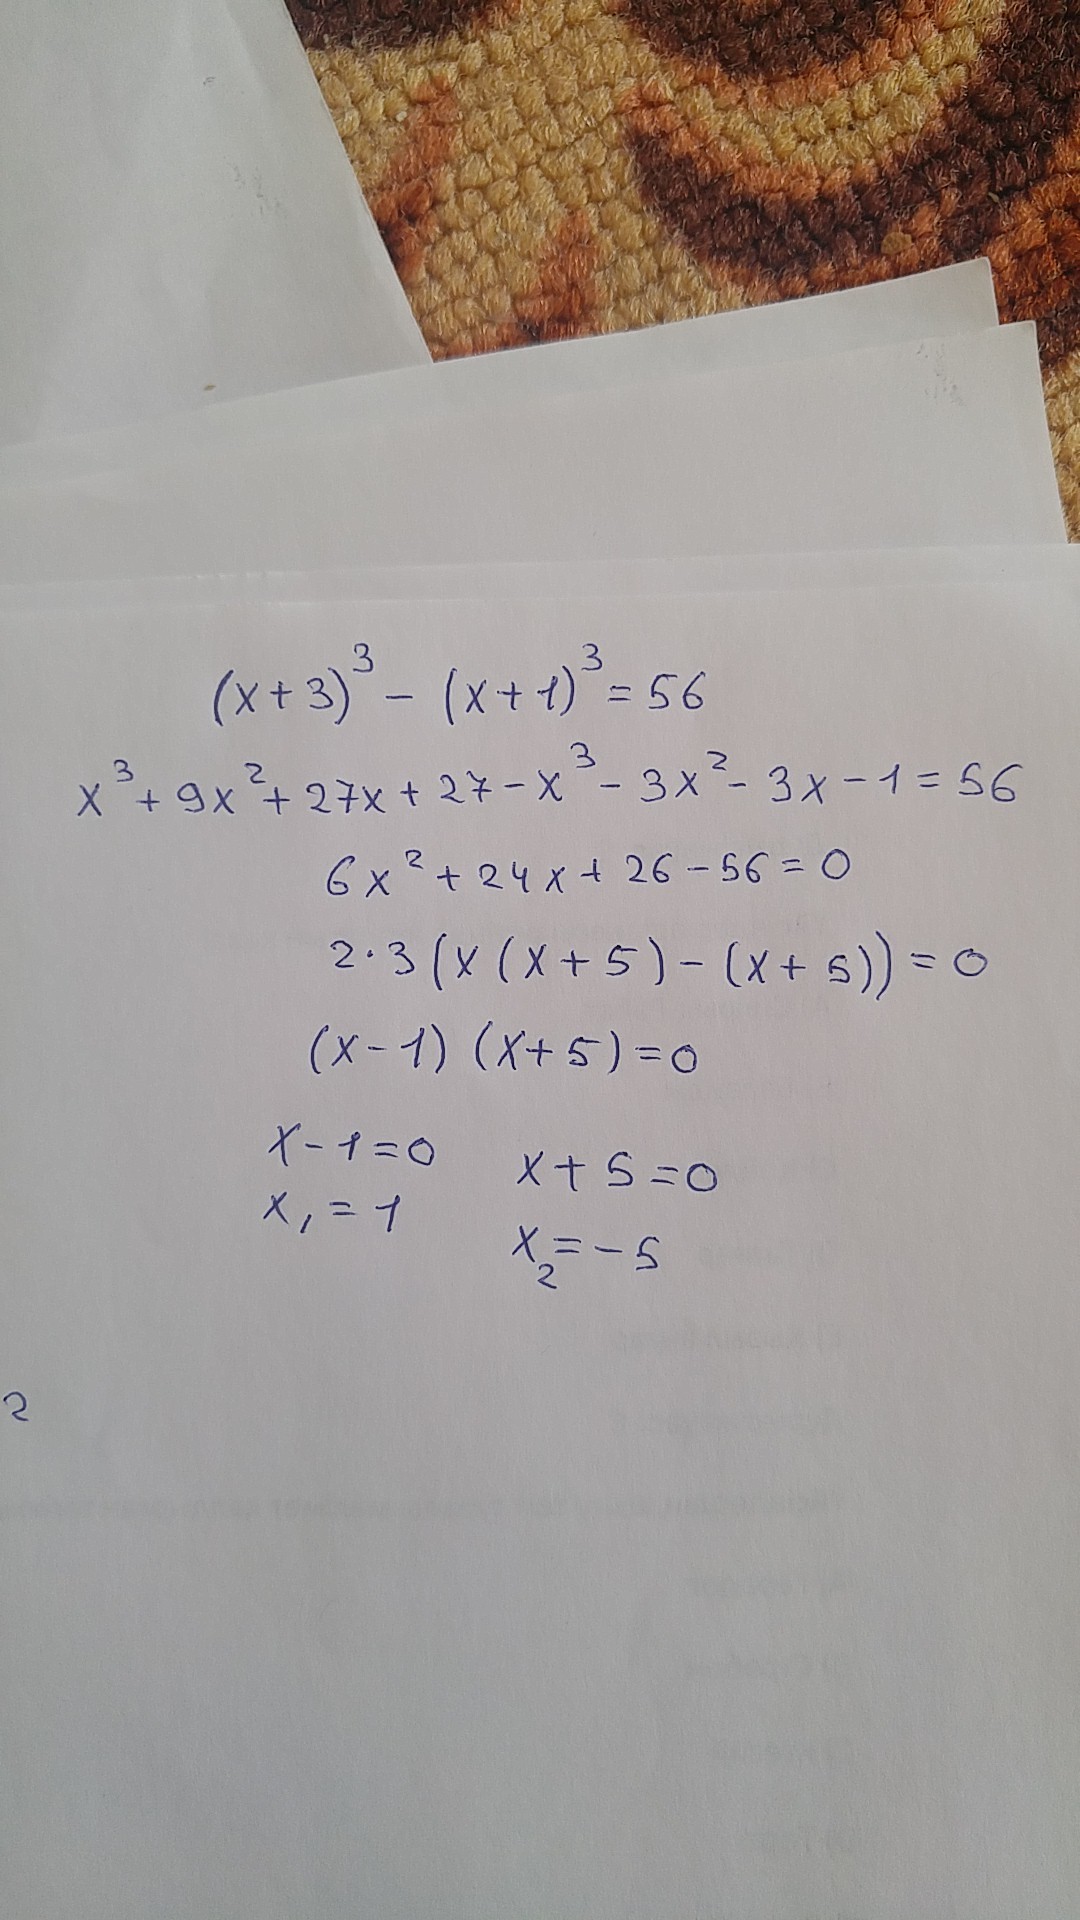 (x+3)³ - (x+1)³ = 56
x³ + 9x² + 27x + 27 - x³ - 3x² - 3x - 1 = 56
6x² + 24x + 26 - 56 = 0
2·3(x(x+5) - (x+5)) = 0
(x-1) (x+5) = 0
x-1=0 x+5=0
x₁ = 1 x₂ = -5
2